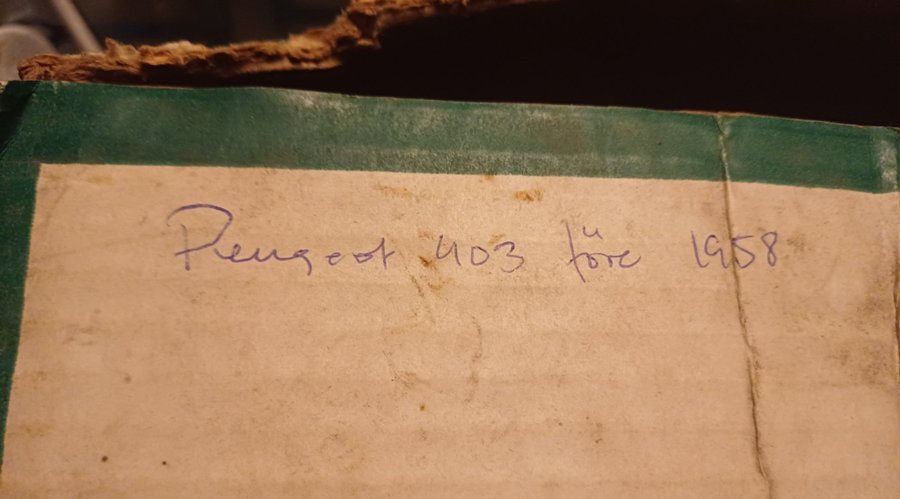 Peugeot 403 före 1958